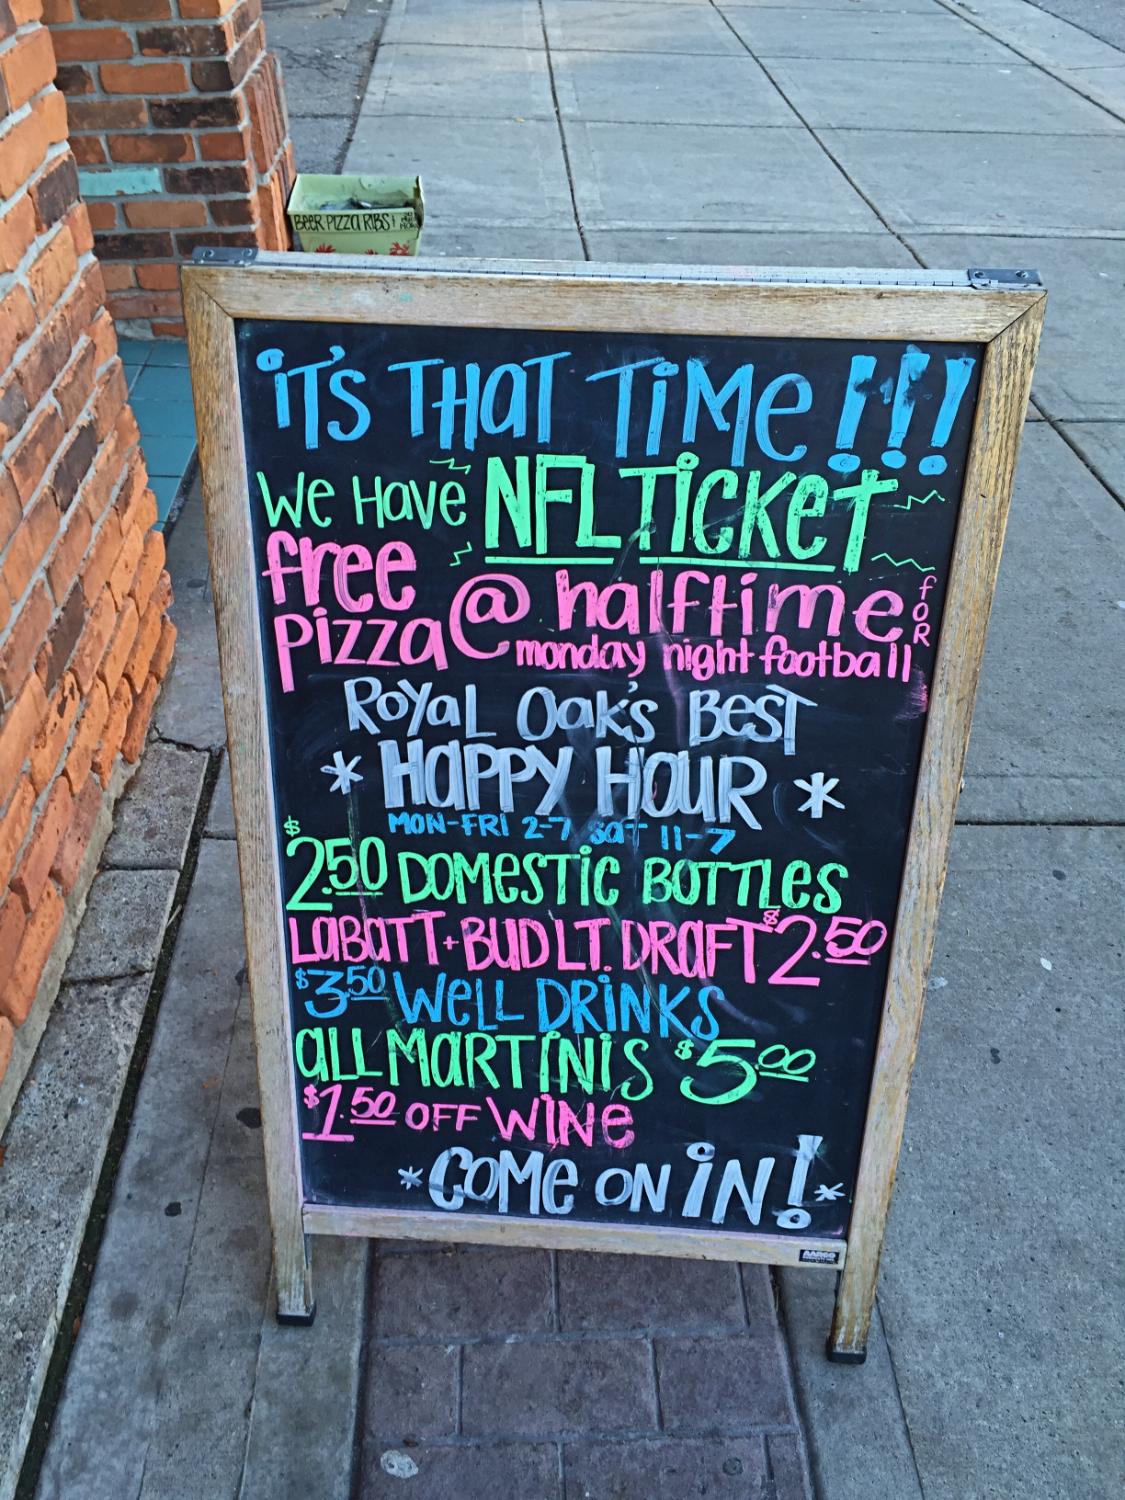 BEER PIZZA RIBS &
iT'S THaT TiMe!!!
We Have NFL TiCKeT
free pizza @ halftime foR
monday night football
Royal Oak's Best
* Happy Hour *
MON-FRI 2-7 Sat 11-7
$2.50 DOMESTiC BOTTLeS
LaBaTT + BUD LT. DRaFT $2.50
$3.50 WeLL DRiNKS
aLL MaRTiNiS $5.00
$1.50 OFF WiNe
*COMe ON iN!*
AARCO